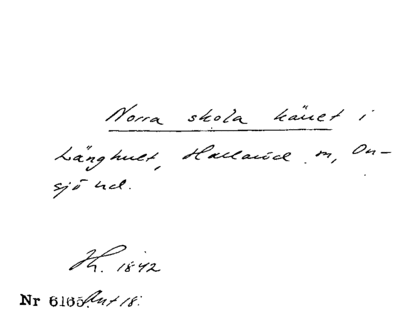 Norra skola käuet i
Långhult, Halland m, On-
sjö hd.
Th. 1842
Nr 6165. Ant 18.